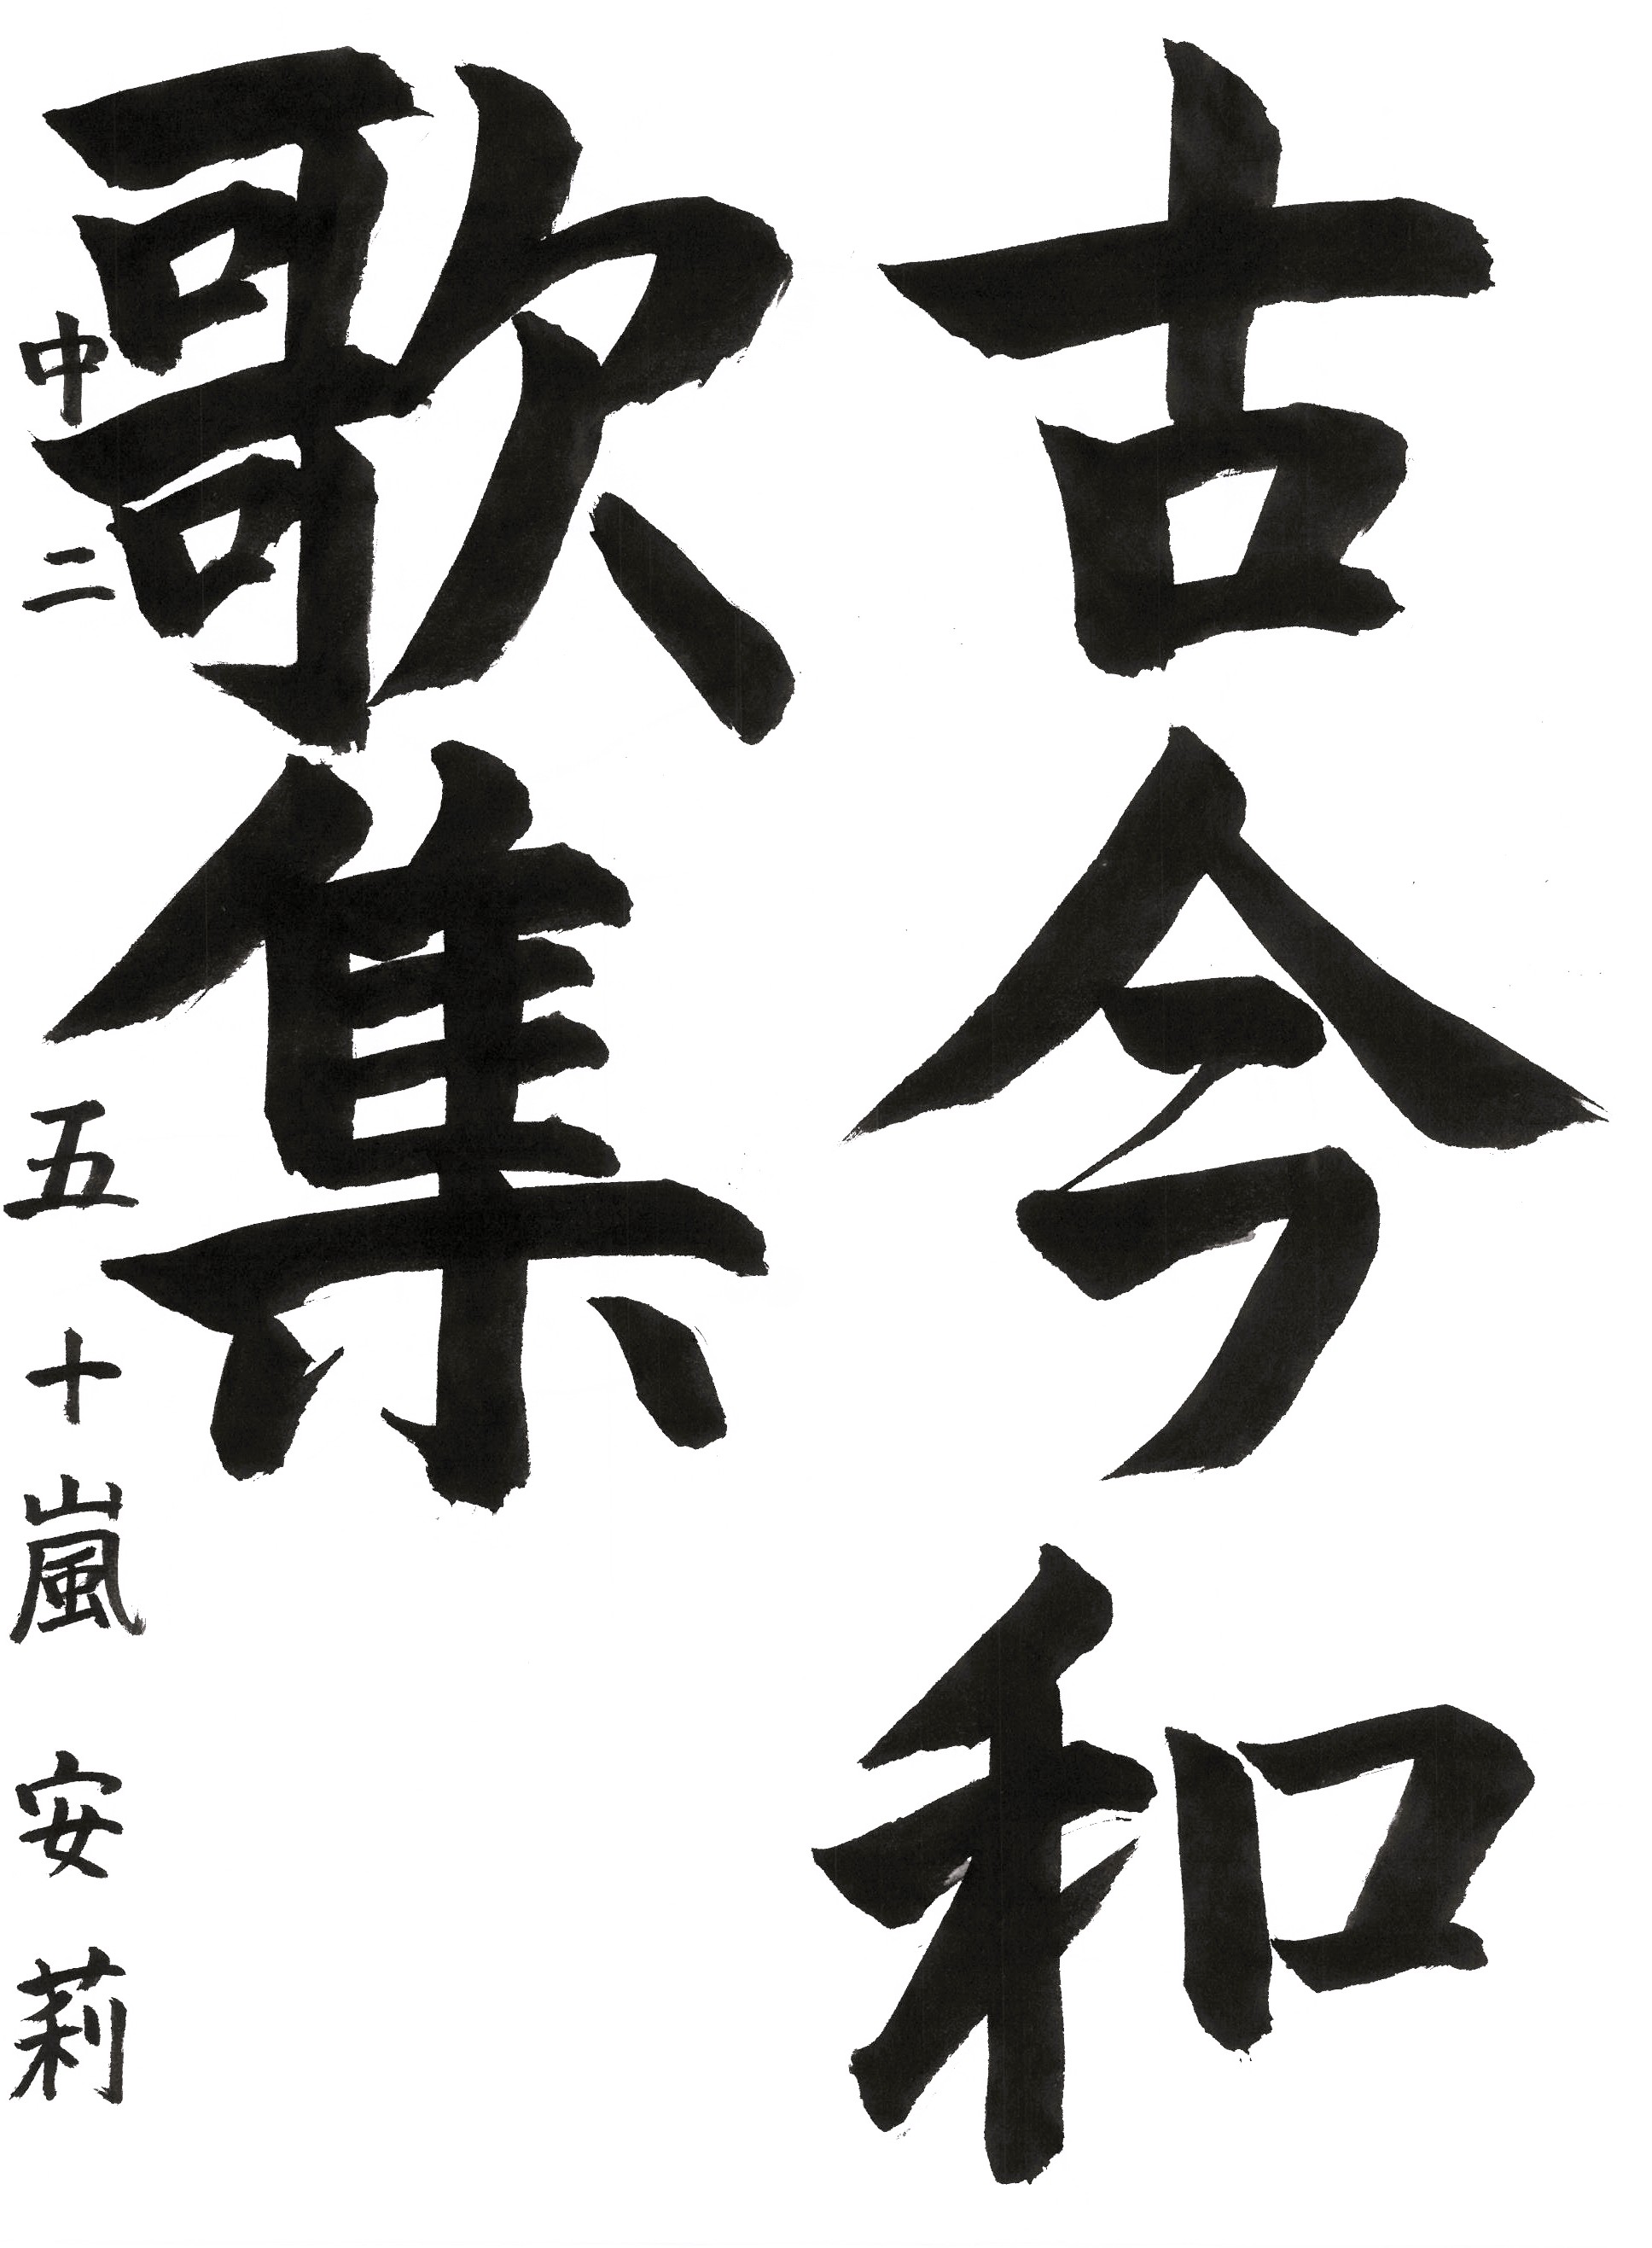 古今和
歌集
中二 五十嵐 安莉